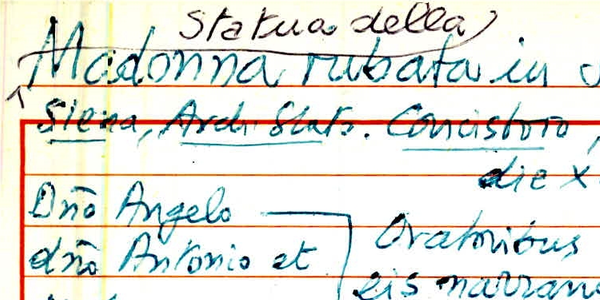 Statua della
Madonna rubata in
Siena, Arch. Stato. Concistoro,
die X
Dño Angelo
Oratoribus
dño Antonio et
eis narran